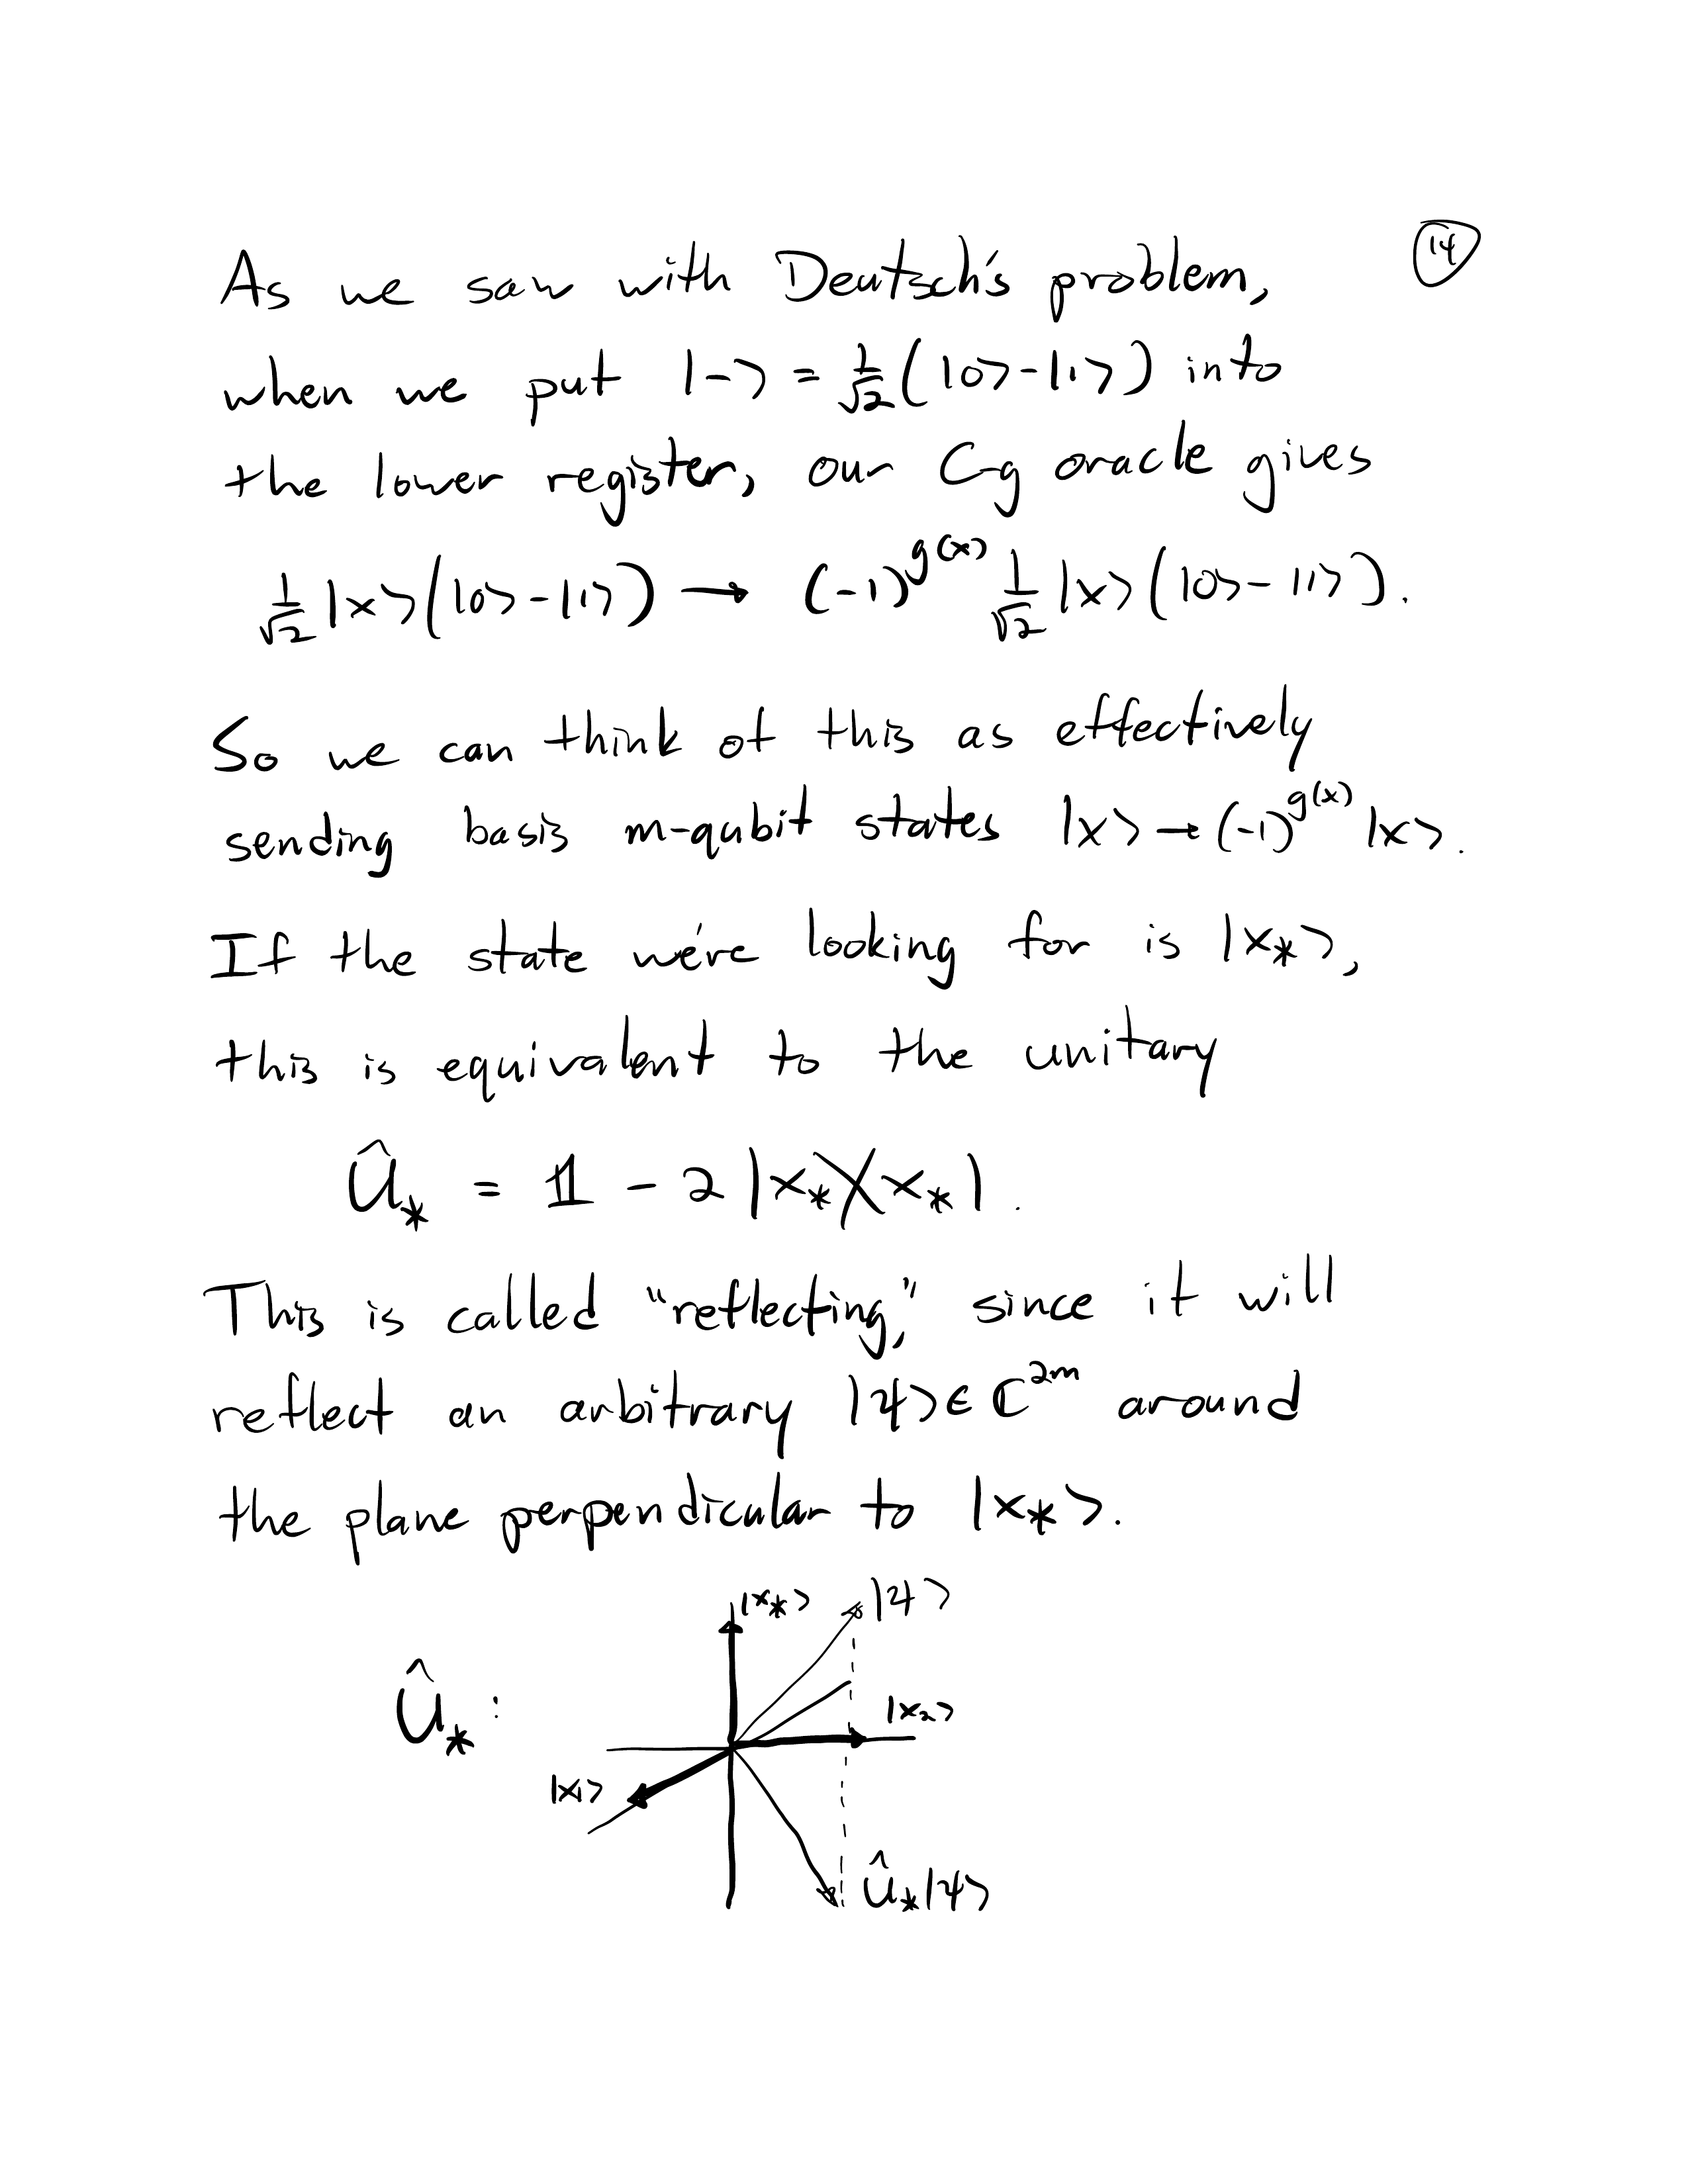 14
As we saw with Deutsch's problem,
when we put |-> = 1/√2 (|0> - |1>) into
the lower register, our C-g oracle gives
1/√2 |x> (|0> - |1>) → (-1)^g(x) 1/√2 |x> (|0> - |1>).
So we can think of this as effectively
sending basis m-qubit states |x> → (-1)^g(x) |x>.
If the state we're looking for is |x_*>,
this is equivalent to the unitary
Û_* = 𝟙 - 2 |x_*><x_*|.
This is called "reflecting," since it will
reflect an arbitrary |ψ> ∈ ℂ^2m around
the plane perpendicular to |x_*>.
|x_*> |ψ>
Û_*: |x_2>
|x_1>
Û_*|ψ>